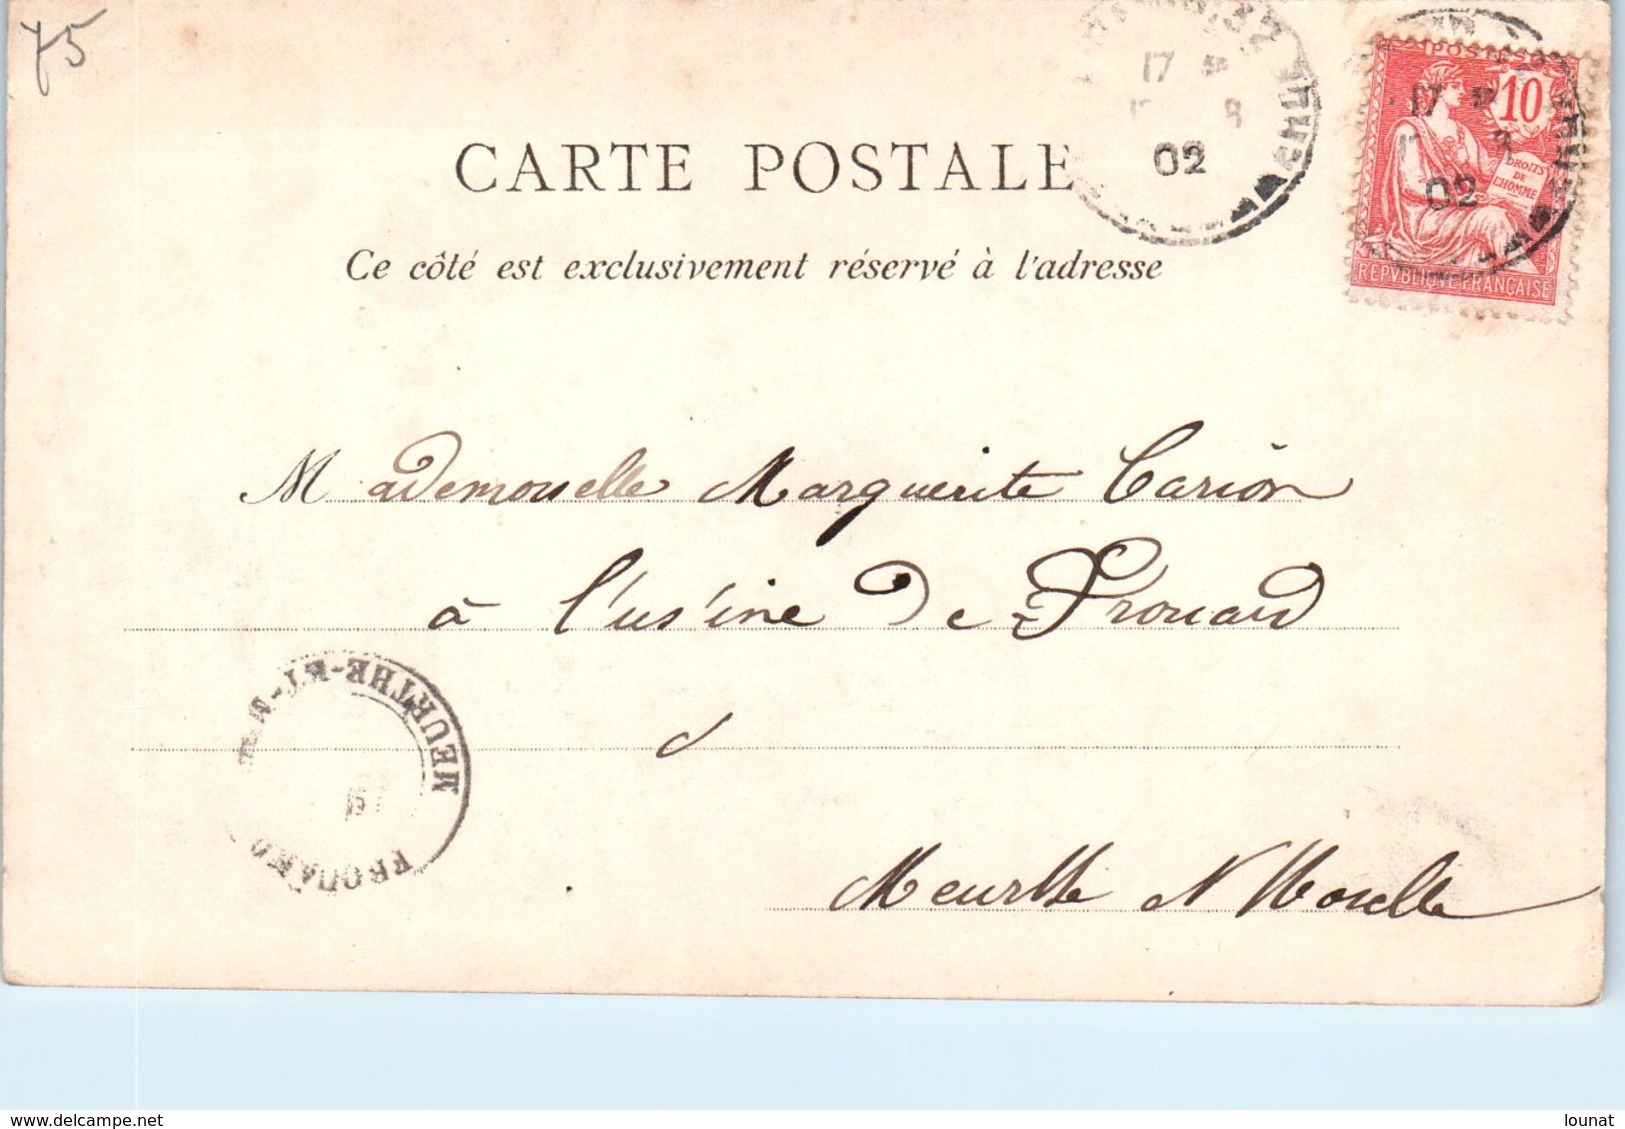 75
17
8
02
POSTES
10
DROITS
DE
L'HOMME
17
8
02
REPVBLIQVE FRANÇAISE
CARTE POSTALE
Ce côté est exclusivement réservé à l'adresse
Mademoiselle Marguerite Carion
à l'usine de Frouard
MEURTHE-ET-M
FROUARD
Meurthe et Moselle
delcampe.net
lounat